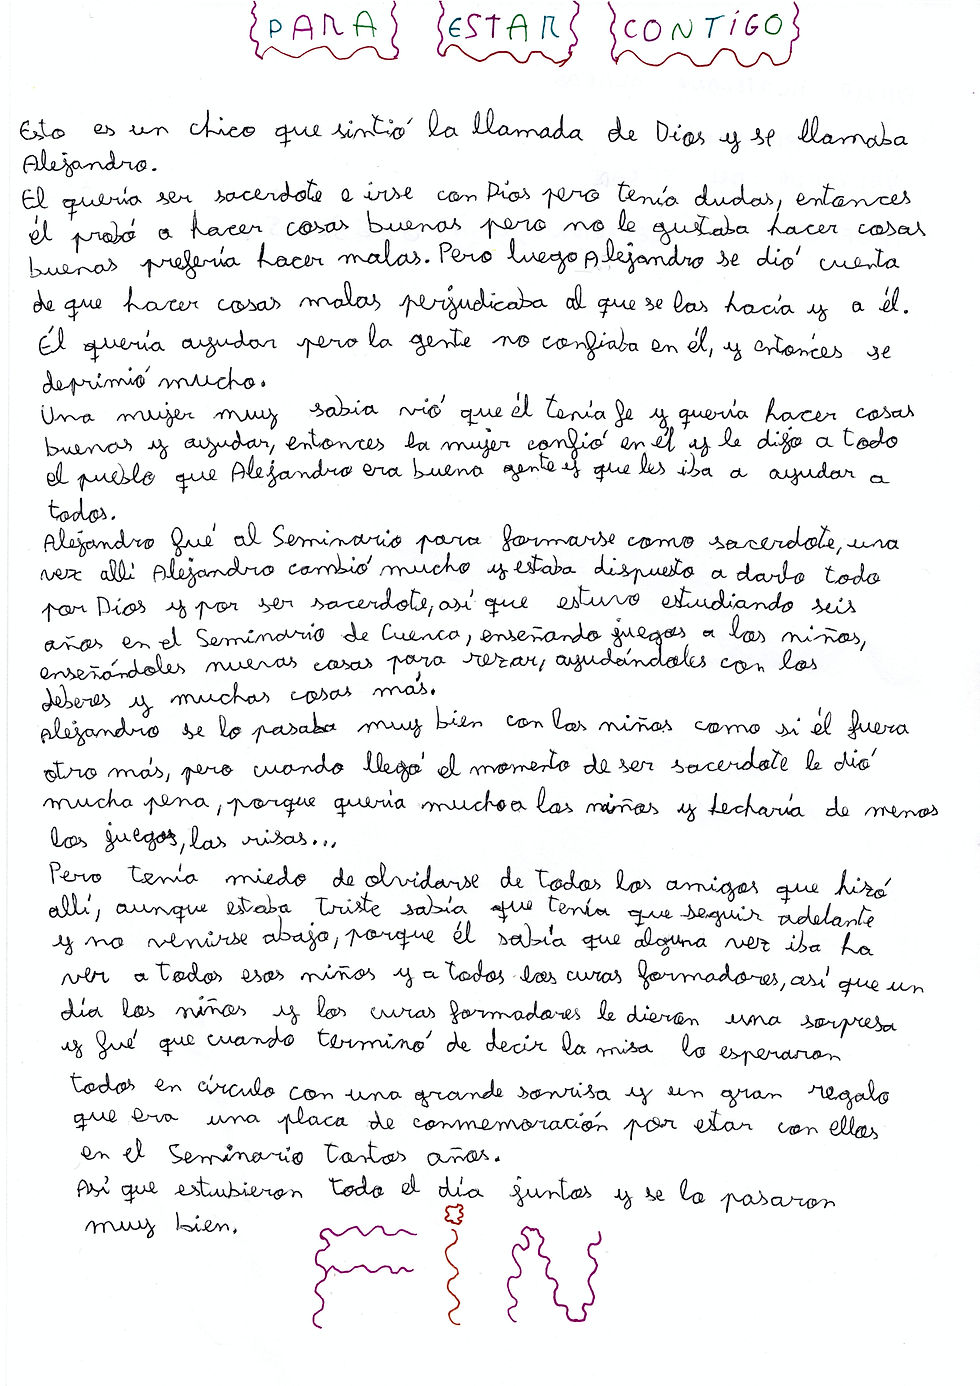 PARA ESTAR CONTIGO
Esto es un chico que sintió la llamada de Dios y se llamaba
Alejandro.
El quería ser sacerdote e irse con Dios pero tenía dudas, entonces
él probó a hacer cosas buenas pero no le gustaba hacer cosas
buenas prefería hacer malas. Pero luego Alejandro se dió cuenta
de que hacer cosas malas perjudicaba al que se las hacía y a él.
Él quería ayudar pero la gente no confiaba en él, y entonces se
deprimió mucho.
Una mujer muy sabia vió que él tenía fe y quería hacer cosas
buenas y ayudar, entonces la mujer confió en él y le dijo a todo
el pueblo que Alejandro era buena gente y que les iba a ayudar a
todos.
Alejandro fué al Seminario para formarse como sacerdote, una
vez allí Alejandro cambió mucho y estaba dispuesto a darlo todo
por Dios y por ser sacerdote, así que estuvo estudiando seis
años en el Seminario de Cuenca, enseñando juegos a los niños,
enseñándoles nuevas cosas para rezar, ayudándoles con los
deberes y muchas cosas más.
Alejandro se lo pasaba muy bien con los niños como si él fuera
otro más, pero cuando llegó el momento de ser sacerdote le dió
mucha pena, porque quería mucho a los niños y echaría de menos
los juegos, las risas...
Pero tenía miedo de olvidarse de todos los amigos que hizó
allí, aunque estaba triste sabía que tenía que seguir adelante
y no venirse abajo, porque él sabía que alguna vez iba ha
ver a todos esos niños y a todos los curas formadores, así que un
día los niños y los curas formadores le dieron una sorpresa
y fué que cuando terminó de decir la misa lo esperaron
todos en círculo con una grande sonrisa y un gran regalo
que era una placa de conmemoración por estar con ellos
en el Seminario tantos años.
Así que estubieron todo el día juntos y se lo pasaron
muy bien.
FIN